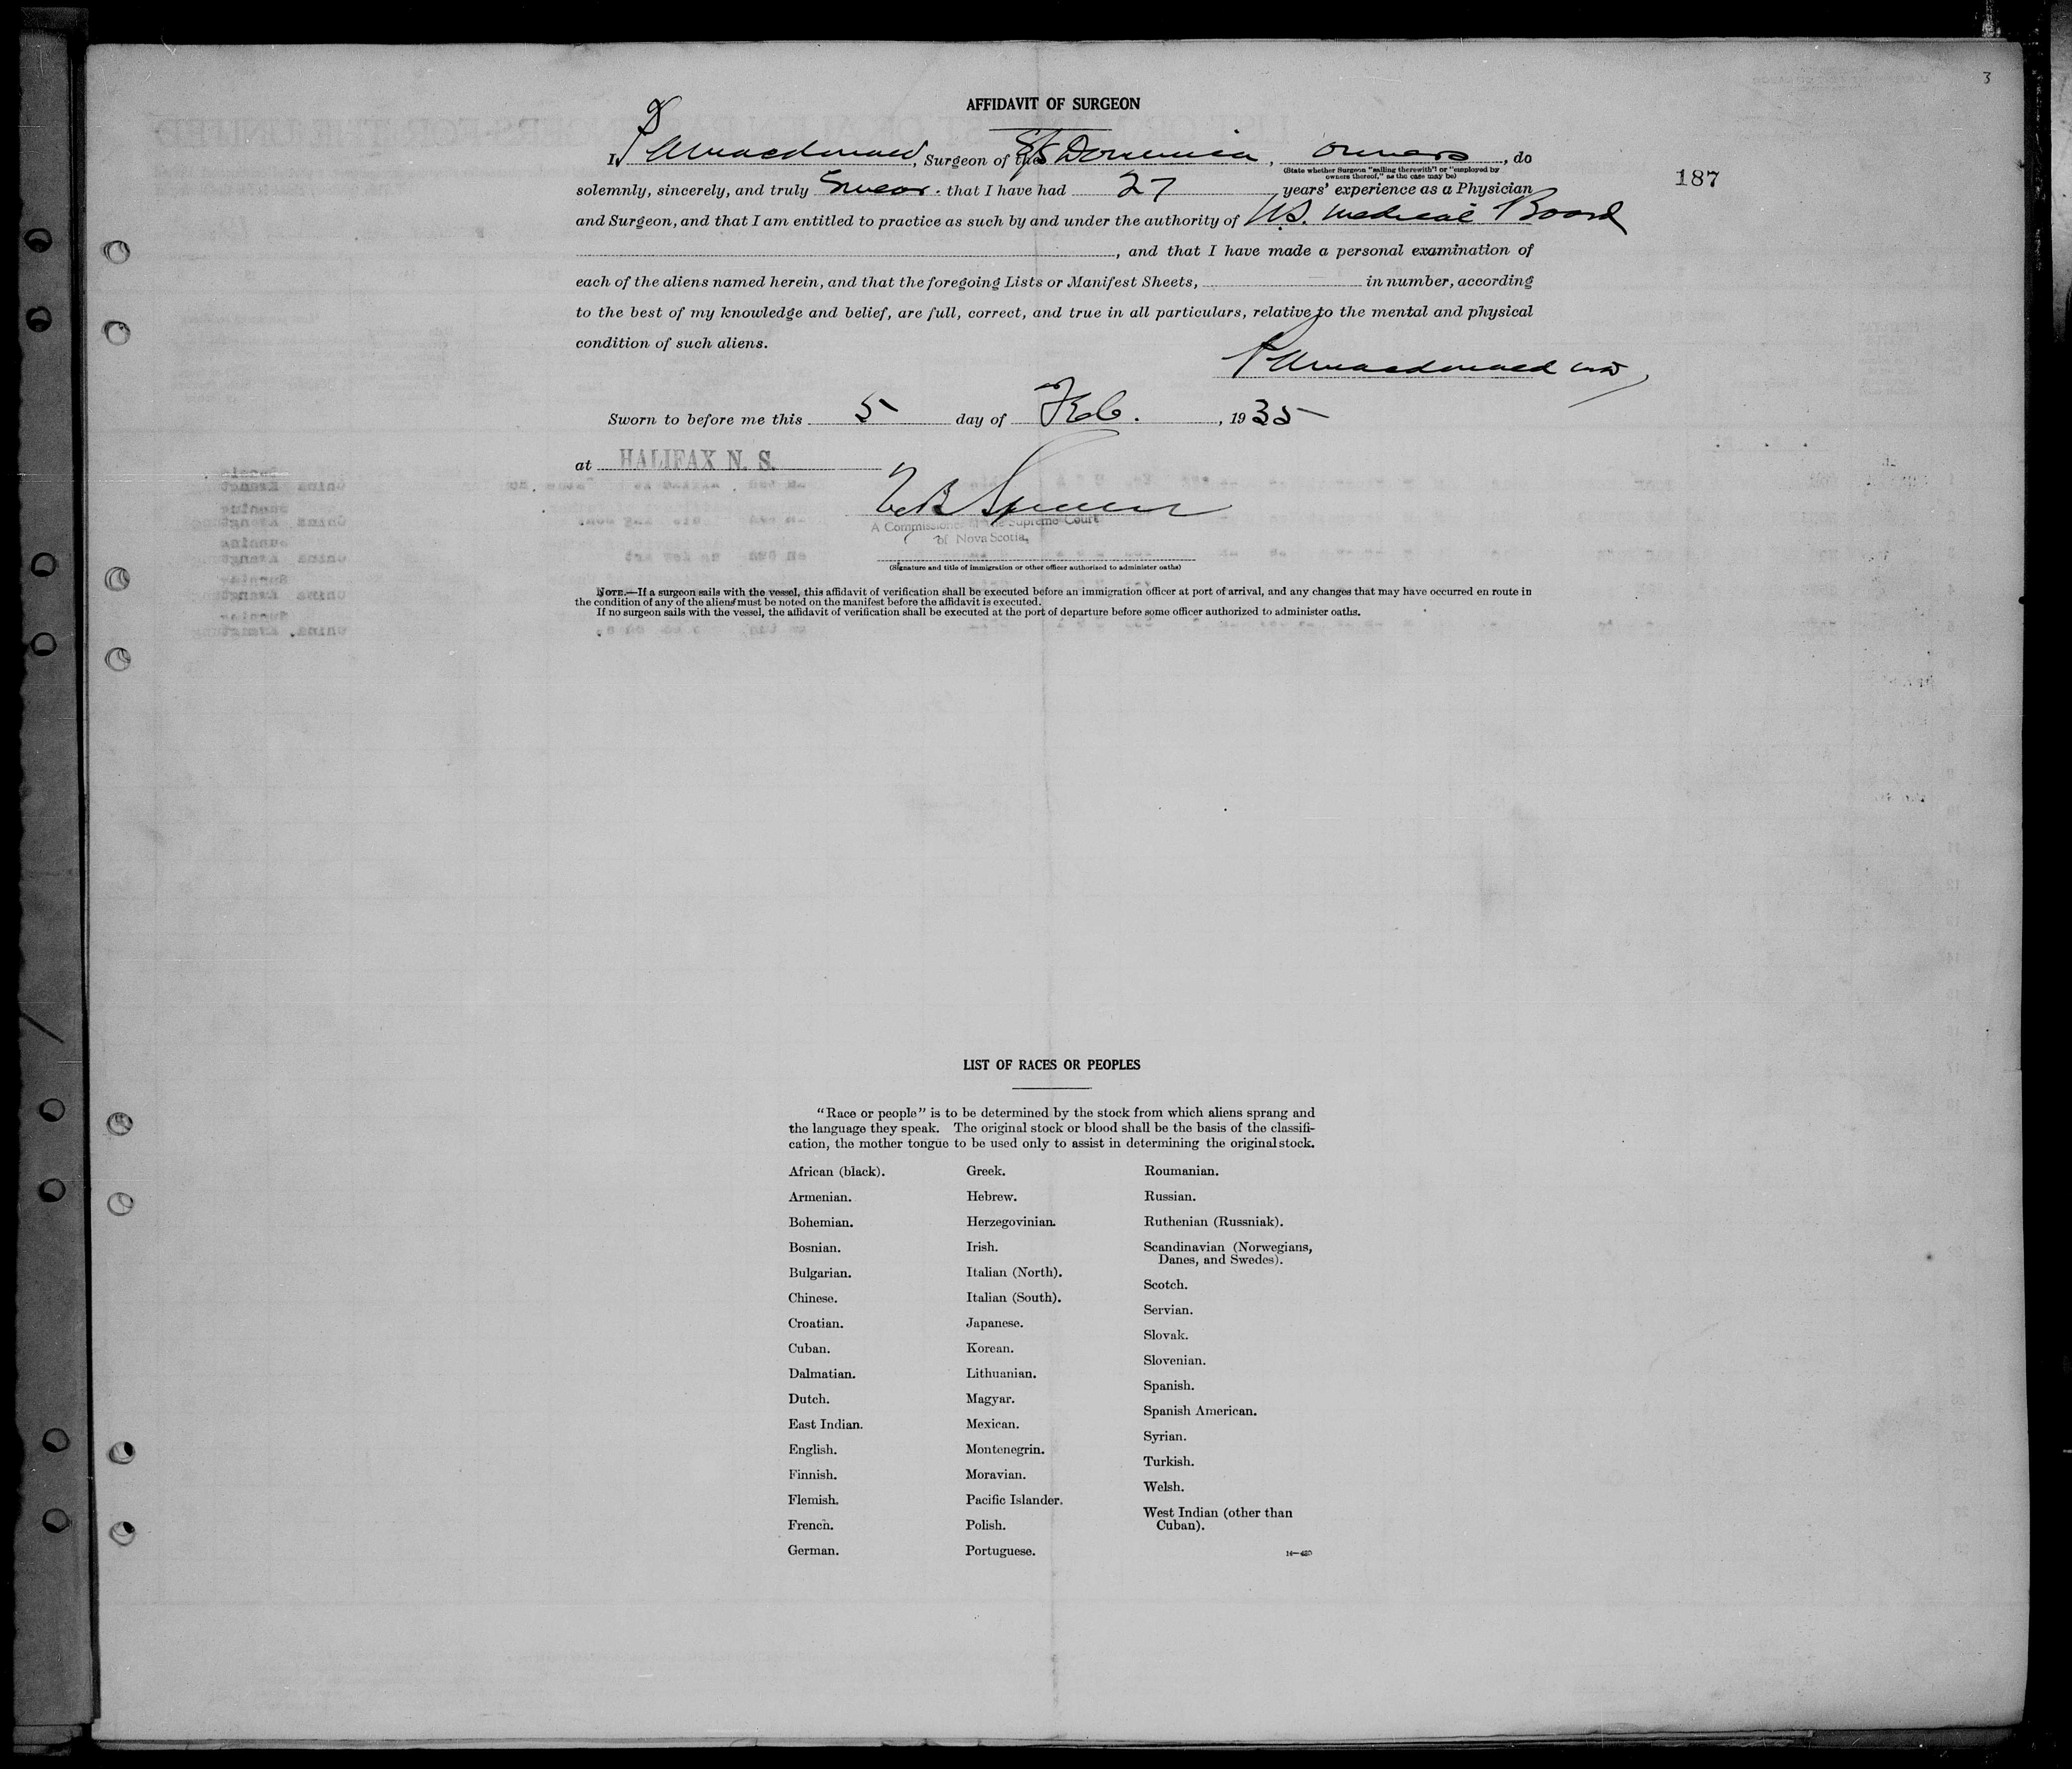 3
AFFIDAVIT OF SURGEON
I, P A Macdonald, Surgeon of the SS Dominica, owners, do
(State whether Surgeon "sailing therewith" or "employed by
owners thereof," as the case may be)
187
solemnly, sincerely, and truly swear. that I have had 27 years' experience as a Physician
and Surgeon, and that I am entitled to practice as such by and under the authority of N.S. Medical Board
, and that I have made a personal examination of
each of the aliens named herein, and that the foregoing Lists or Manifest Sheets, in number, according
to the best of my knowledge and belief, are full, correct, and true in all particulars, relative to the mental and physical
condition of such aliens.
P A Macdonald MD
Sworn to before me this 5 day of Feb. , 1935
at HALIFAX N. S.
A Commissioner of the Supreme Court
of Nova Scotia,
(Signature and title of immigration or other officer authorized to administer oaths)
NOTE.—If a surgeon sails with the vessel, this affidavit of verification shall be executed before an immigration officer at port of arrival, and any changes that may have occurred en route in
the condition of any of the aliens must be noted on the manifest before the affidavit is executed.
If no surgeon sails with the vessel, the affidavit of verification shall be executed at the port of departure before some officer authorized to administer oaths.
LIST OF RACES OR PEOPLES
"Race or people" is to be determined by the stock from which aliens sprang and
the language they speak. The original stock or blood shall be the basis of the classifi-
cation, the mother tongue to be used only to assist in determining the original stock.
African (black).
Armenian.
Bohemian.
Bosnian.
Bulgarian.
Chinese.
Croatian.
Cuban.
Dalmatian.
Dutch.
East Indian.
English.
Finnish.
Flemish.
French.
German.
Greek.
Hebrew.
Herzegovinian.
Irish.
Italian (North).
Italian (South).
Japanese.
Korean.
Lithuanian.
Magyar.
Mexican.
Montenegrin.
Moravian.
Pacific Islander.
Polish.
Portuguese.
Roumanian.
Russian.
Ruthenian (Russniak).
Scandinavian (Norwegians,
Danes, and Swedes).
Scotch.
Servian.
Slovak.
Slovenian.
Spanish.
Spanish American.
Syrian.
Turkish.
Welsh.
West Indian (other than
Cuban).